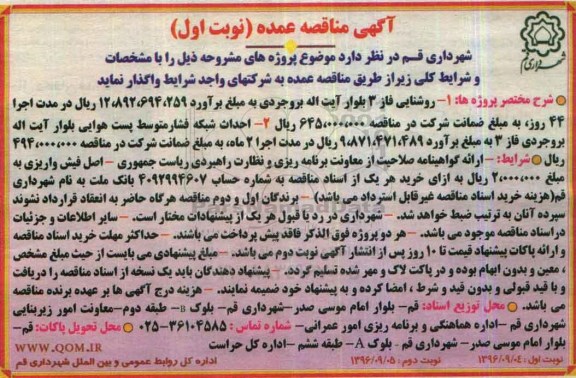 آگهی مناقصه عمده (نوبت اول)
شهرداری قم
شهرداری قم در نظر دارد موضوع پروژه های مشروحه ذیل را با مشخصات
و شرایط کلی زیر از طریق مناقصه عمده به شرکتهای واجد شرایط واگذار نماید
شرح مختصر پروژه ها: ۱- روشنایی فاز ۳ بلوار آیت اله بروجردی به مبلغ برآورد ۱۲،۸۹۲،۶۹۴،۲۵۹ ریال در مدت اجرا
۴۴ روز، به مبلغ ضمانت شرکت در مناقصه ۶۴۵،۰۰۰،۰۰۰ ریال ۲- احداث شبکه فشارمتوسط پست هوایی بلوار آیت اله
بروجردی فاز ۳ به مبلغ برآورد ۹،۸۷۱،۴۷۱،۴۸۹ ریال در مدت اجرا ۲ ماه، به مبلغ ضمانت شرکت در مناقصه ۴۹۴،۰۰۰،۰۰۰
ریال شرایط: - ارائه گواهینامه صلاحیت از معاونت برنامه ریزی و نظارت راهبردی ریاست جمهوری - اصل فیش واریزی به
مبلغ ۲،۰۰۰،۰۰۰ ریال به ازای خرید هر یک از اسناد مناقصه به شماره حساب ۴۰۹۲۹۹۴۶۰۷ بانک ملت به نام شهرداری
قم(هزینه خرید اسناد مناقصه غیر قابل استرداد می باشد) - برندگان اول و دوم مناقصه هرگاه حاضر به انعقاد قرارداد نشوند
سپرده آنان به ترتیب ضبط خواهد شد. - شهرداری در رد یا قبول هر یک از پیشنهادات مختار است. - سایر اطلاعات و جزئیات
در اسناد مناقصه موجود می باشد. - هر دو پروژه فوق الذکر فاقد پیش پرداخت می باشند. - حداکثر مهلت خرید اسناد مناقصه
و ارائه پاکات پیشنهاد قیمت تا ۱۰ روز پس از انتشار آگهی نوبت دوم می باشد. - مبلغ پیشنهادی می بایست از حیث مبلغ مشخص
، معین و بدون ابهام بوده و در پاکت لاک و مهر شده تسلیم گردد. - پیشنهاد دهندگان باید یک نسخه از اسناد مناقصه را دریافت
و با قید قبولی و بدون قید و شرط ، امضا کرده و به پیشنهاد خود ضمیمه نمایند. - هزینه درج آگهی ها بر عهده برنده مناقصه
می باشد. محل توزیع اسناد: قم- بلوار امام موسی صدر-شهرداری قم- بلوک B- طبقه دوم-معاونت امور زیربنایی
شهرداری قم -اداره هماهنگی و برنامه ریزی امور عمرانی- شماره تماس : ۳۶۱۰۴۵۸۵-۰۲۵ محل تحویل پاکات: قم-
بلوار امام موسی صدر- شهرداری قم- بلوک A- طبقه ششم -اداره کل حراست
نوبت اول: ۱۳۹۶/۰۹/۰۴ نوبت دوم: ۱۳۹۶/۰۹/۰۵
اداره کل روابط عمومی و بین الملل شهرداری قم
WWW.QOM.IR